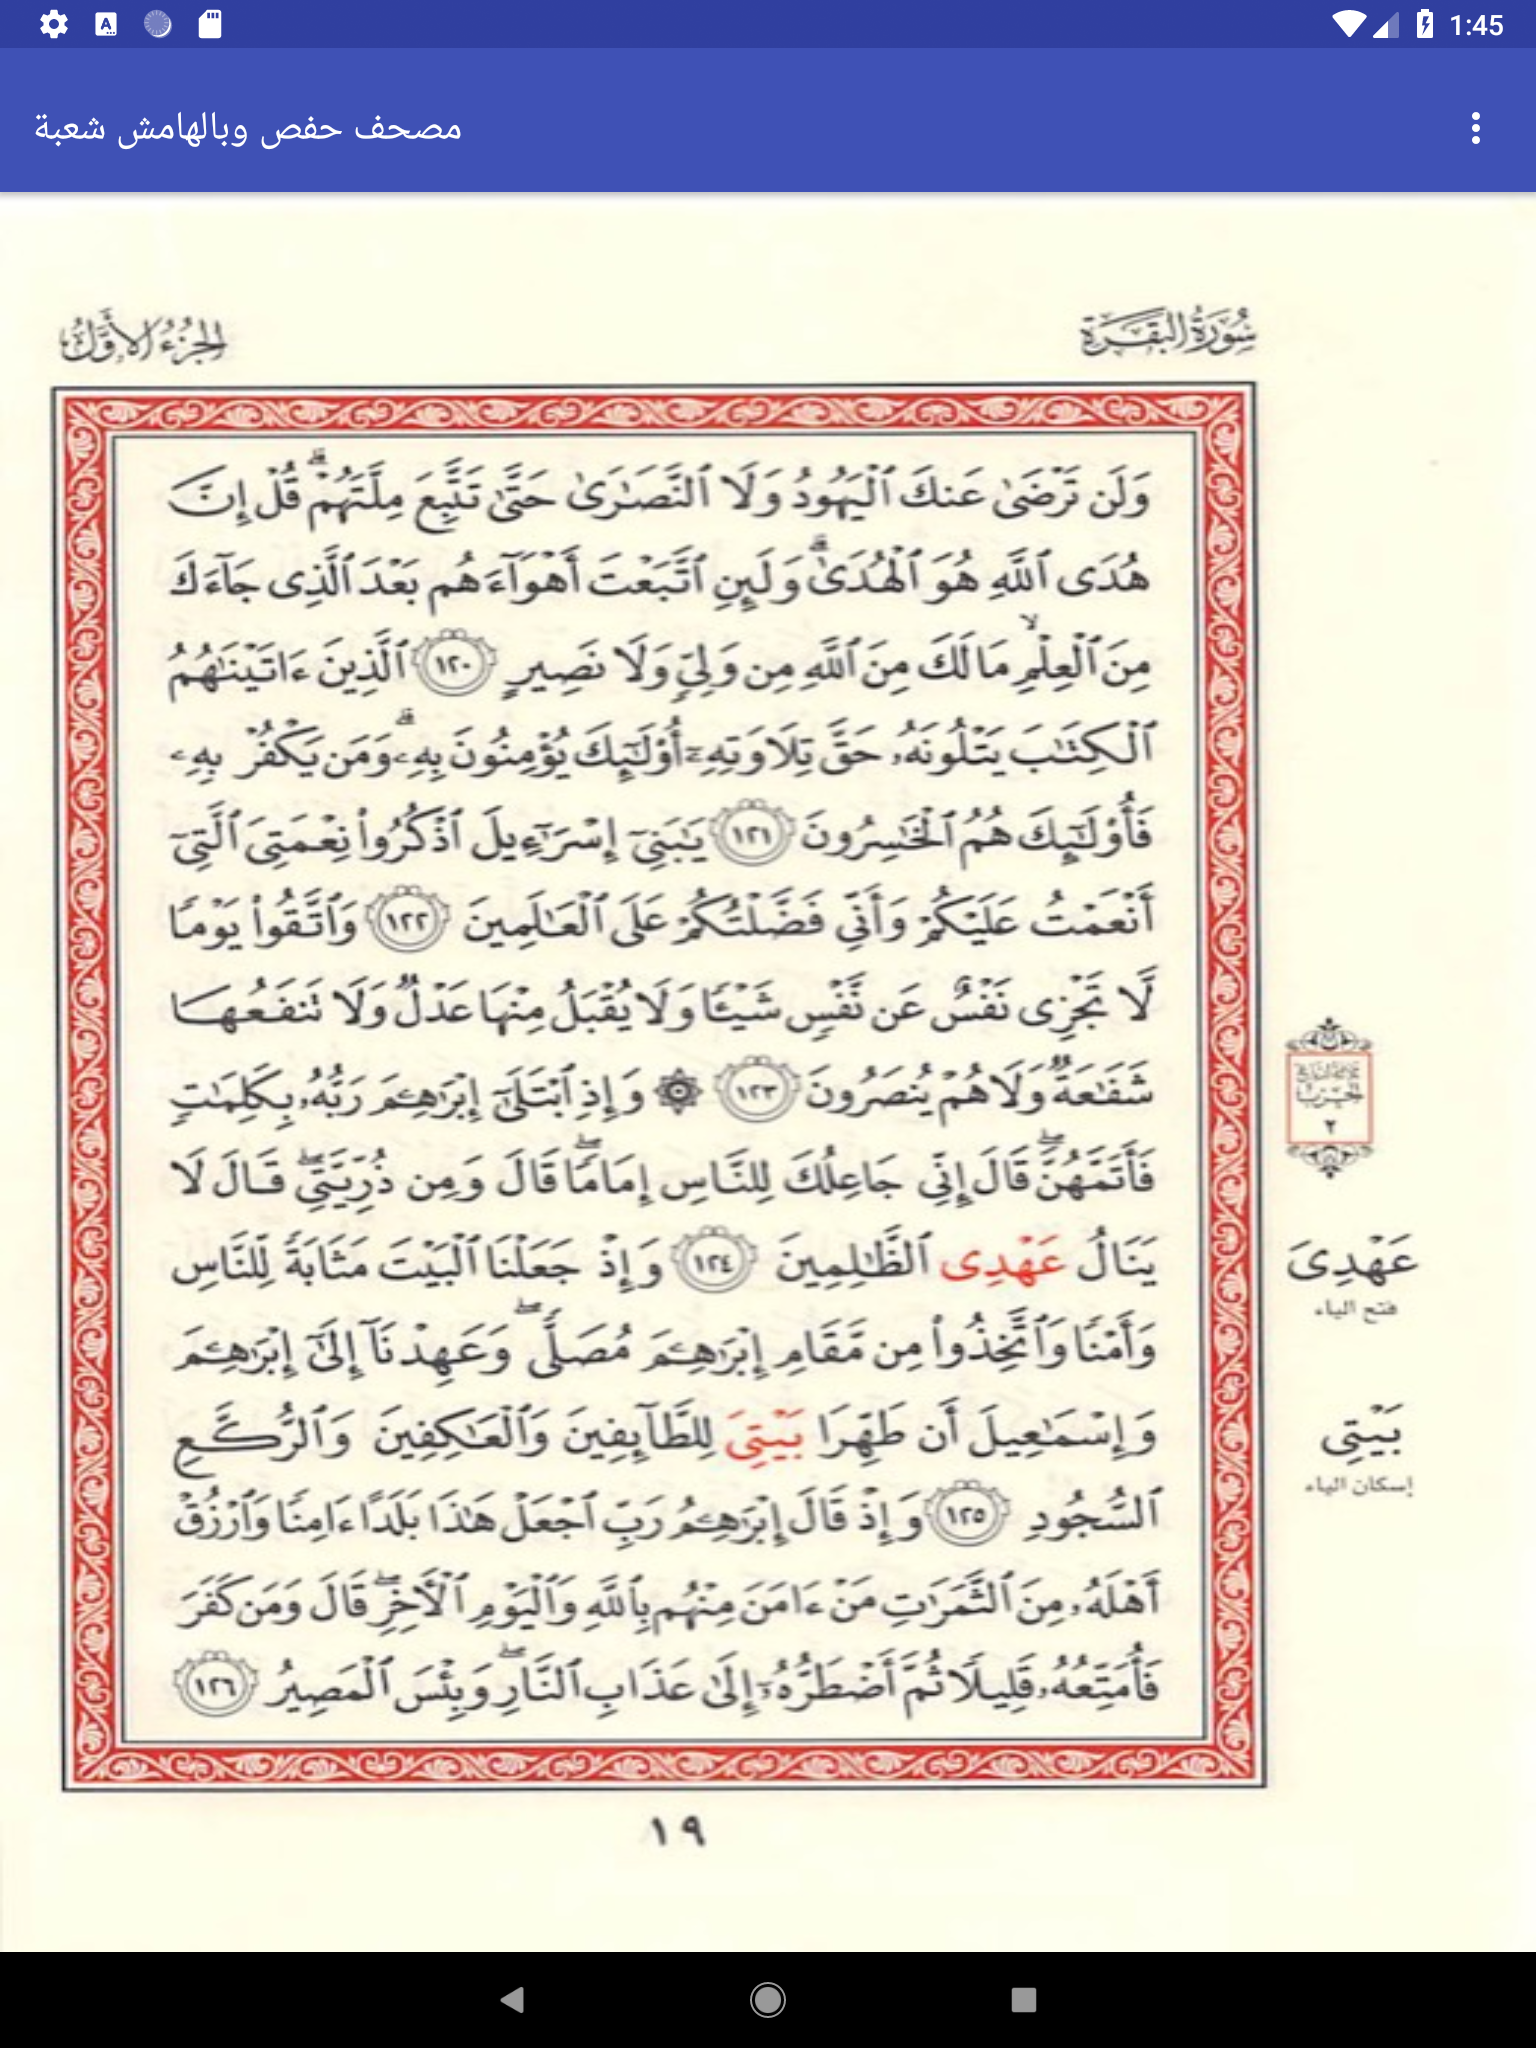 1:45
مصحف حفص وبالهامش شعبة
سُورَةُ البَقَرَةِ
الجُزْءُ الأَوَّلُ
وَلَن تَرْضَىٰ عَنكَ ٱلْيَهُودُ وَلَا ٱلنَّصَٰرَىٰ حَتَّىٰ تَتَّبِعَ مِلَّتَهُمْ ۗ قُلْ إِنَّ
هُدَى ٱللَّهِ هُوَ ٱلْهُدَىٰ ۗ وَلَئِنِ ٱتَّبَعْتَ أَهْوَآءَهُم بَعْدَ ٱلَّذِى جَآءَكَ
مِنَ ٱلْعِلْمِ ۙ مَا لَكَ مِنَ ٱللَّهِ مِن وَلِىٍّ وَلَا نَصِيرٍ ١٢٠ ٱلَّذِينَ ءَاتَيْنَٰهُمُ
ٱلْكِتَٰبَ يَتْلُونَهُۥ حَقَّ تِلَاوَتِهِۦٓ أُو۟لَٰٓئِكَ يُؤْمِنُونَ بِهِۦ ۗ وَمَن يَكْفُرْ بِهِۦ
فَأُو۟لَٰٓئِكَ هُمُ ٱلْخَٰسِرُونَ ١٢١ يَٰبَنِىٓ إِسْرَٰٓءِيلَ ٱذْكُرُوا۟ نِعْمَتِىَ ٱلَّتِىٓ
أَنْعَمْتُ عَلَيْكُمْ وَأَنِّى فَضَّلْتُكُمْ عَلَى ٱلْعَٰلَمِينَ ١٢٢ وَٱتَّقُوا۟ يَوْمًا
لَّا تَجْزِى نَفْسٌ عَن نَّفْسٍ شَيْـًٔا وَلَا يُقْبَلُ مِنْهَا عَدْلٌ وَلَا تَنفَعُهَا
شَفَٰعَةٌ وَلَا هُمْ يُنصَرُونَ ١٢٣ ۞ وَإِذِ ٱبْتَلَىٰٓ إِبْرَٰهِـۧمَ رَبُّهُۥ بِكَلِمَٰتٍ
فَأَتَمَّهُنَّ ۖ قَالَ إِنِّى جَاعِلُكَ لِلنَّاسِ إِمَامًا ۖ قَالَ وَمِن ذُرِّيَّتِى ۖ قَالَ لَا
يَنَالُ عَهْدِى ٱلظَّٰلِمِينَ ١٢٤ وَإِذْ جَعَلْنَا ٱلْبَيْتَ مَثَابَةً لِّلنَّاسِ
وَأَمْنًا وَٱتَّخِذُوا۟ مِن مَّقَامِ إِبْرَٰهِـۧمَ مُصَلًّى ۖ وَعَهِدْنَآ إِلَىٰٓ إِبْرَٰهِـۧمَ
وَإِسْمَٰعِيلَ أَن طَهِّرَا بَيْتِىَ لِلطَّآئِفِينَ وَٱلْعَٰكِفِينَ وَٱلرُّكَّعِ
ٱلسُّجُودِ ١٢٥ وَإِذْ قَالَ إِبْرَٰهِـۧمُ رَبِّ ٱجْعَلْ هَٰذَا بَلَدًا ءَامِنًا وَٱرْزُقْ
أَهْلَهُۥ مِنَ ٱلثَّمَرَٰتِ مَنْ ءَامَنَ مِنْهُم بِٱللَّهِ وَٱلْيَوْمِ ٱلْءَاخِرِ ۖ قَالَ وَمَن كَفَرَ
فَأُمَتِّعُهُۥ قَلِيلًا ثُمَّ أَضْطَرُّهُۥٓ إِلَىٰ عَذَابِ ٱلنَّارِ ۖ وَبِئْسَ ٱلْمَصِيرُ ١٢٦
ثلاثة أرباع
الحزب
٢
عَهْدِىَ
فتح الياء
بَيْتِى
إسكان الياء
١٩